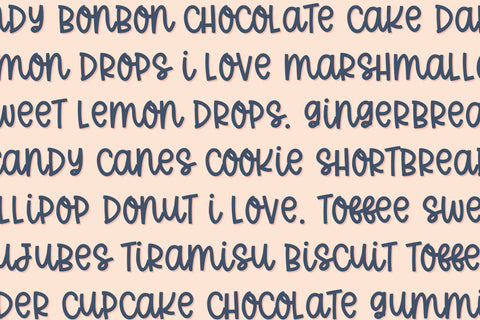 NDY BONBON CHOCOLATE CAKE DA
MON DROPS i LOVE MARSHMALL
WEET LEMON DROPS. GINGERBREA
CANDY CANES COOKIE SHORTBREA
LLIPOP DONUT i LOVE. TOFFEE SWE
UJUBES TIRAMISU BISCUIT TOFFE
DER CUPCAKE CHOCOLATE GUMMI